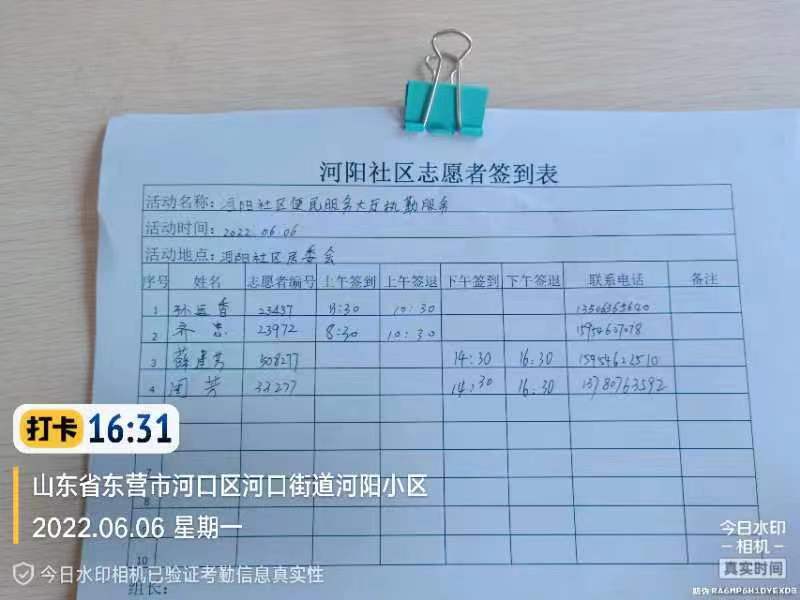 河阳社区志愿者签到表
活动名称：河阳社区便民服务大厅执勤服务
活动时间：2022.06.06
活动地点：河阳社区居委会
序号 姓名 志愿者编号 上午签到 上午签退 下午签到 下午签退 联系电话 备注
1 23437 8:30 10:30
2 齐忠 23972 8:30 10:30
3 薛建芳 308277 14:30 16:30 15954622510
4 闫芳 33277 14:30 16:30 13780763592
7
8
10
组长：
打卡 16:31
山东省东营市河口区河口街道河阳小区
2022.06.06 星期一
今日水印相机已验证考勤信息真实性
今日水印
相机
真实时间
防伪 RA6MP6H1DYEXDB